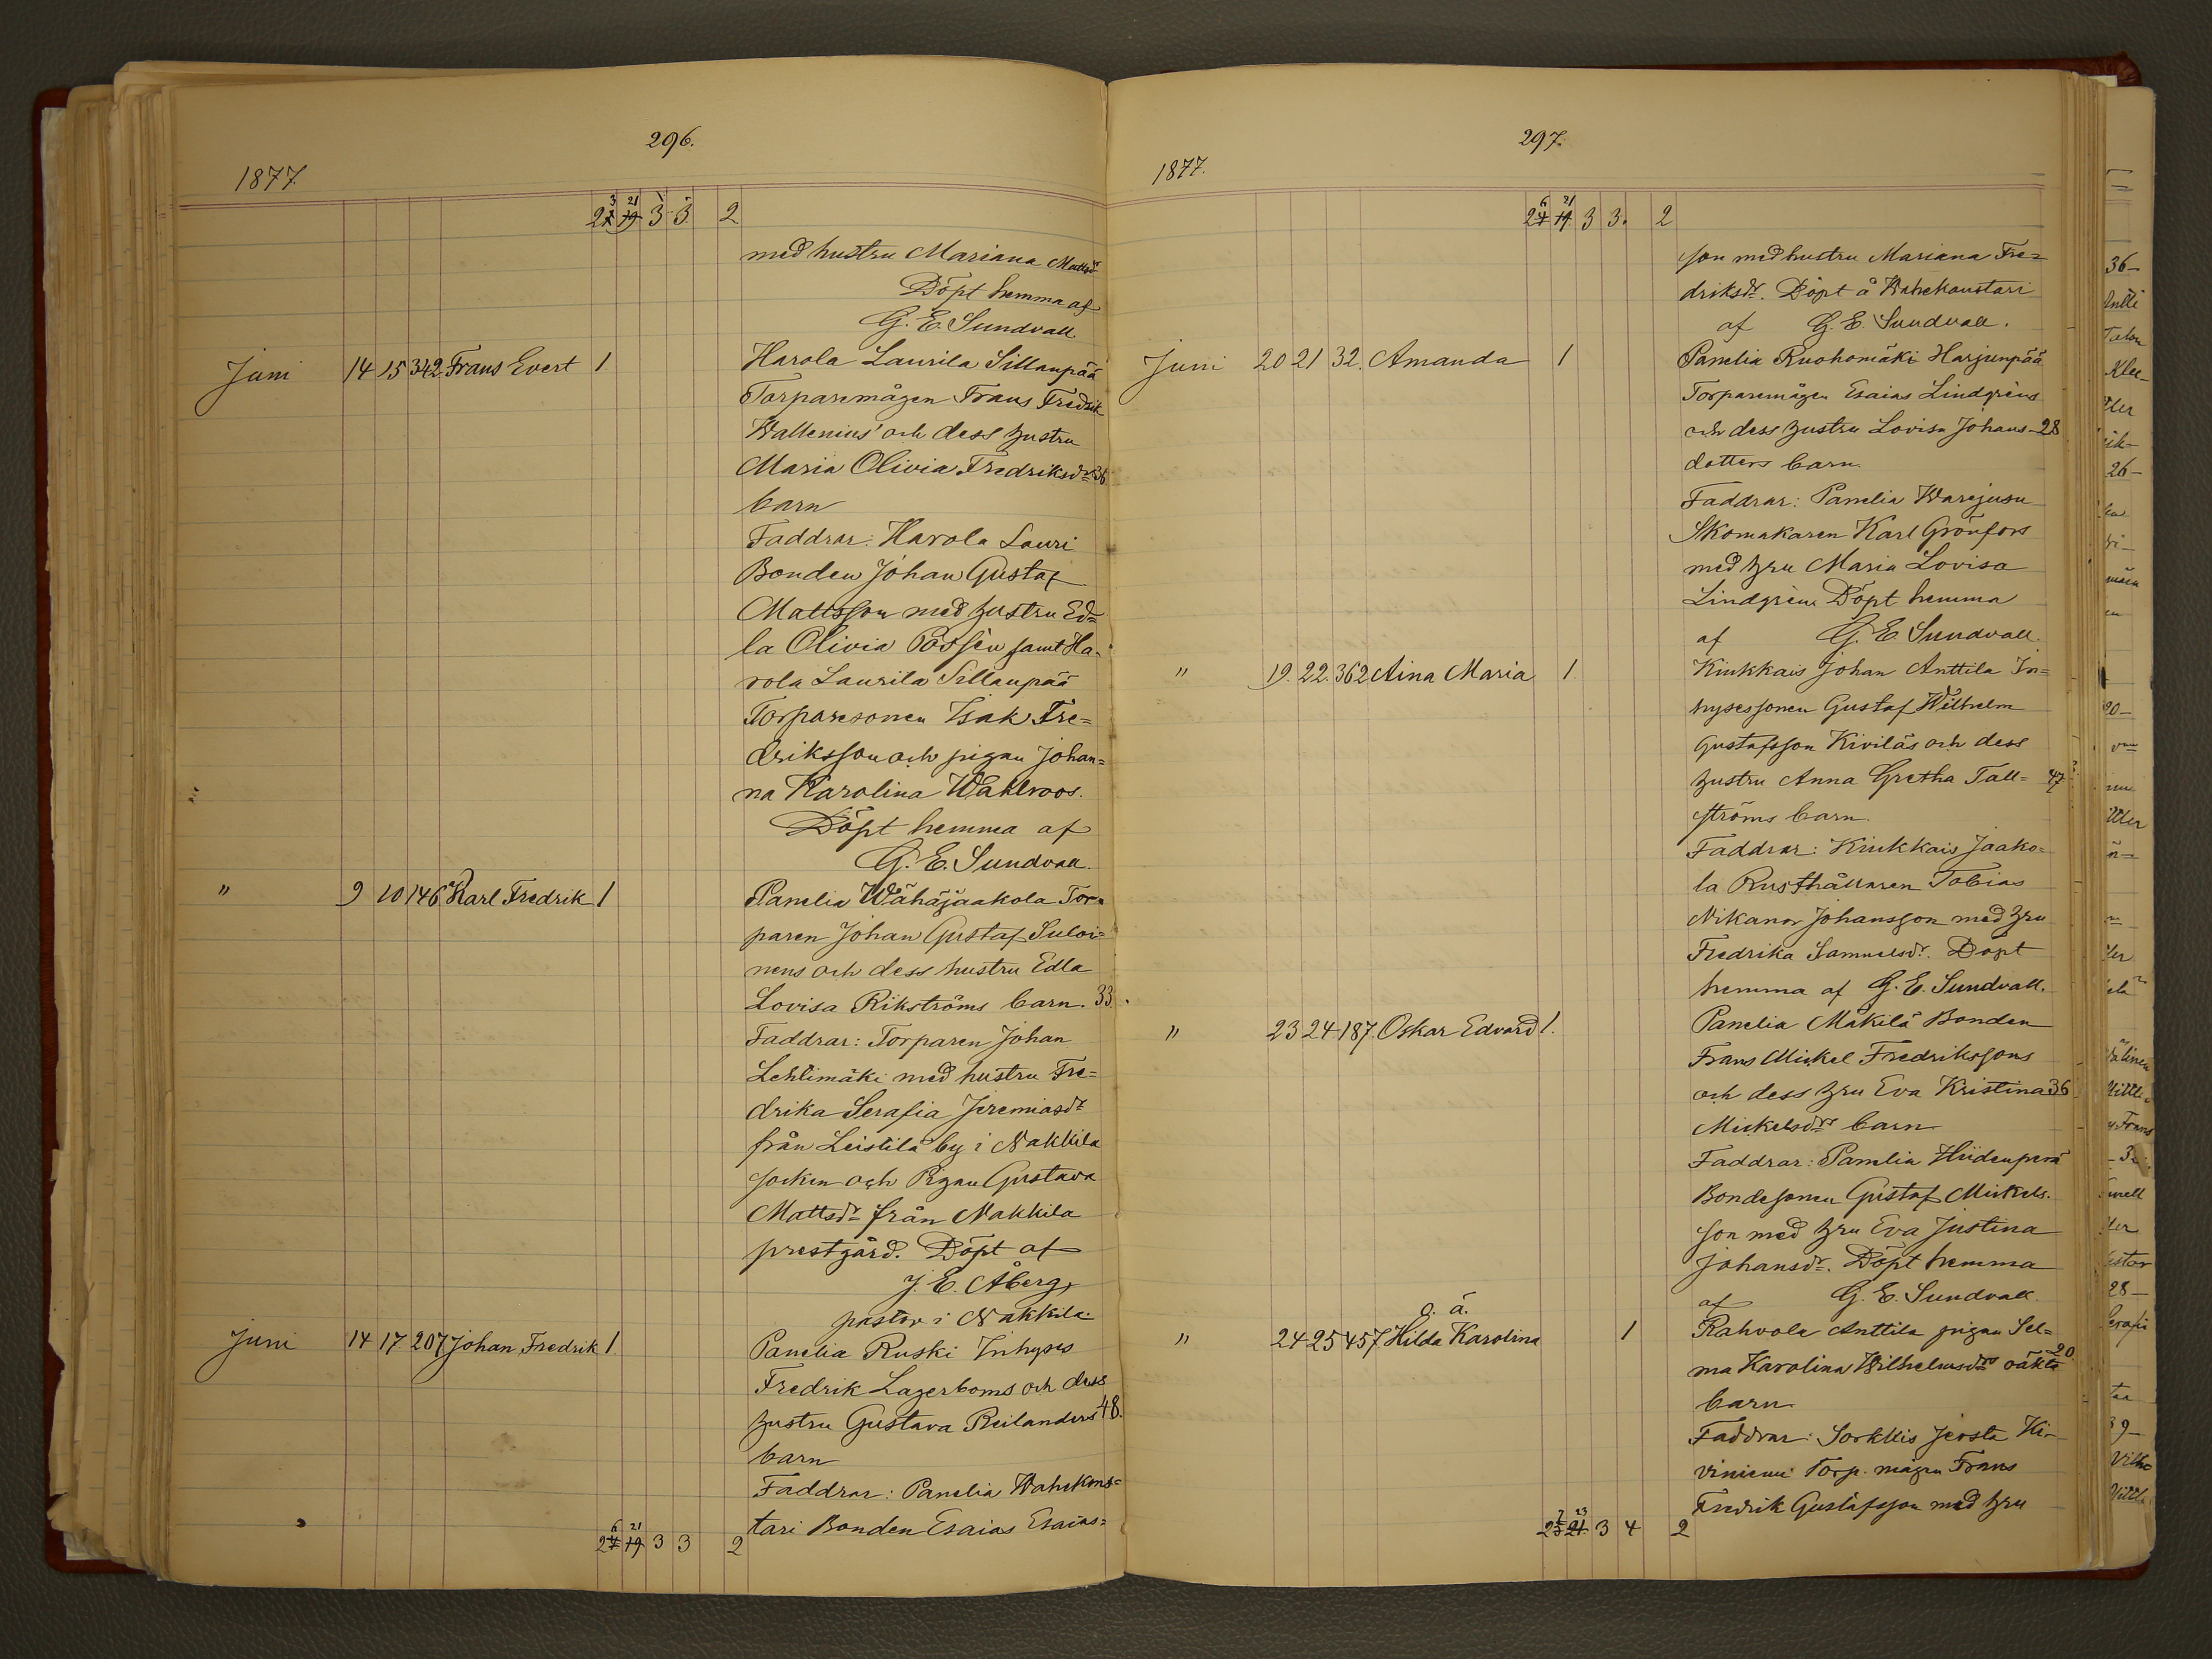 296.
1877
3 21
2 19 3 3 2
med hustru Mariana Mattsdr
Döpt hemma af
G. E. Sundvall.
Juni 14 15 342 Frans Evert 1 Harola Laurila Sillanpää
Torparemågen Frans Fredrik
Wallenius' och dess hustru
Maria Olivia Fredriksdrs 36
barn
Faddrar: Harola Lauri
Bonden Johan Gustaf
Mattsson med hustru Ed=
la Olivia Possén samt Ha-
rola Laurila Sillanpää
Torparesonen Isak Fre=
driksson och pigan Johan=
na Karolina Wahlroos.
Döpt hemma af
G. E. Sundvall.
" 9 10 146 Karl Fredrik 1 Panelia Wähäjaakola Tor=
paren Johan Gustaf Suloi=
nens och dess hustru Edla
Lovisa Rikströms barn. 33.
Faddrar: Torparen Johan
Lehtimäki med hustru Fre=
drika Serafia Jeremiasdr
från Leistilä by i Nakkila
socken och Pigan Gustava
Mattsdr från Nakkila
prestgård. Döpt af
J. E. Åberg,
pastor i Nakkila.
Juni 14 17 207 Johan Fredrik 1. Panelia Ruski Inhyses
Fredrik Lagerboms och dess
hustru Gustava Reilanders 48.
barn
Faddrar: Panelia Wahekons=
tari Bonden Esaias Esaias=
6 21
24 19 3 3 2
297.
1877.
6 21
24 19 3 3. 2
son med hustru Mariana Fre=
driksdr. Döpt å Wahekaustari
af G. E. Sundvall.
Juni 20 21 32. Amanda 1 Panelia Ruohomäki Harjunpää
Torparemågen Esaias Lindgréns
och dess hustru Lovisa Johans- 28
dotters barn.
Faddrar: Panelia Warejusu
Skomakaren Karl Grönfors
med hru Maria Lovisa
Lindgren. Döpt hemma
af G. E. Sundvall.
" 19. 22. 362 Aina Maria 1. Kiukkais Johan Anttila In=
hysessonen Gustaf Wilhelm
Gustafsson Kiviläs och dess
hustru Anna Gretha Tall= 47
ströms barn.
Faddrar: Kiukkais Jaako=
la Rusthållaren Tobias
Nikanor Johansson med hru
Fredrika Samuelsdr. Döpt
hemma af G. E. Sundvall.
" 23 24 187. Oskar Edvard 1. Panelia Mäkilä Bonden
Frans Mickel Fredrikssons
och dess hru Eva Kristina 36
Mickelsdrs barn
Faddrar: Panelia Hiidenperä
Bondesonen Gustaf Mickels-
son med hru Eva Justina
Johansdr. Döpt hemma
af G. E. Sundvall.
o. ä.
" 24 25 457 Hilda Karolina 1 Rahvola Anttila pigan Sel=
ma Karolina Wilhelmsdrs oäkta 20.
barn.
Faddrar: Sorkkis Jersta Ki-
viniemi Torp. mågen Frans
Fredrik Gustafsson med hru
7 23
25 21. 3 4 2